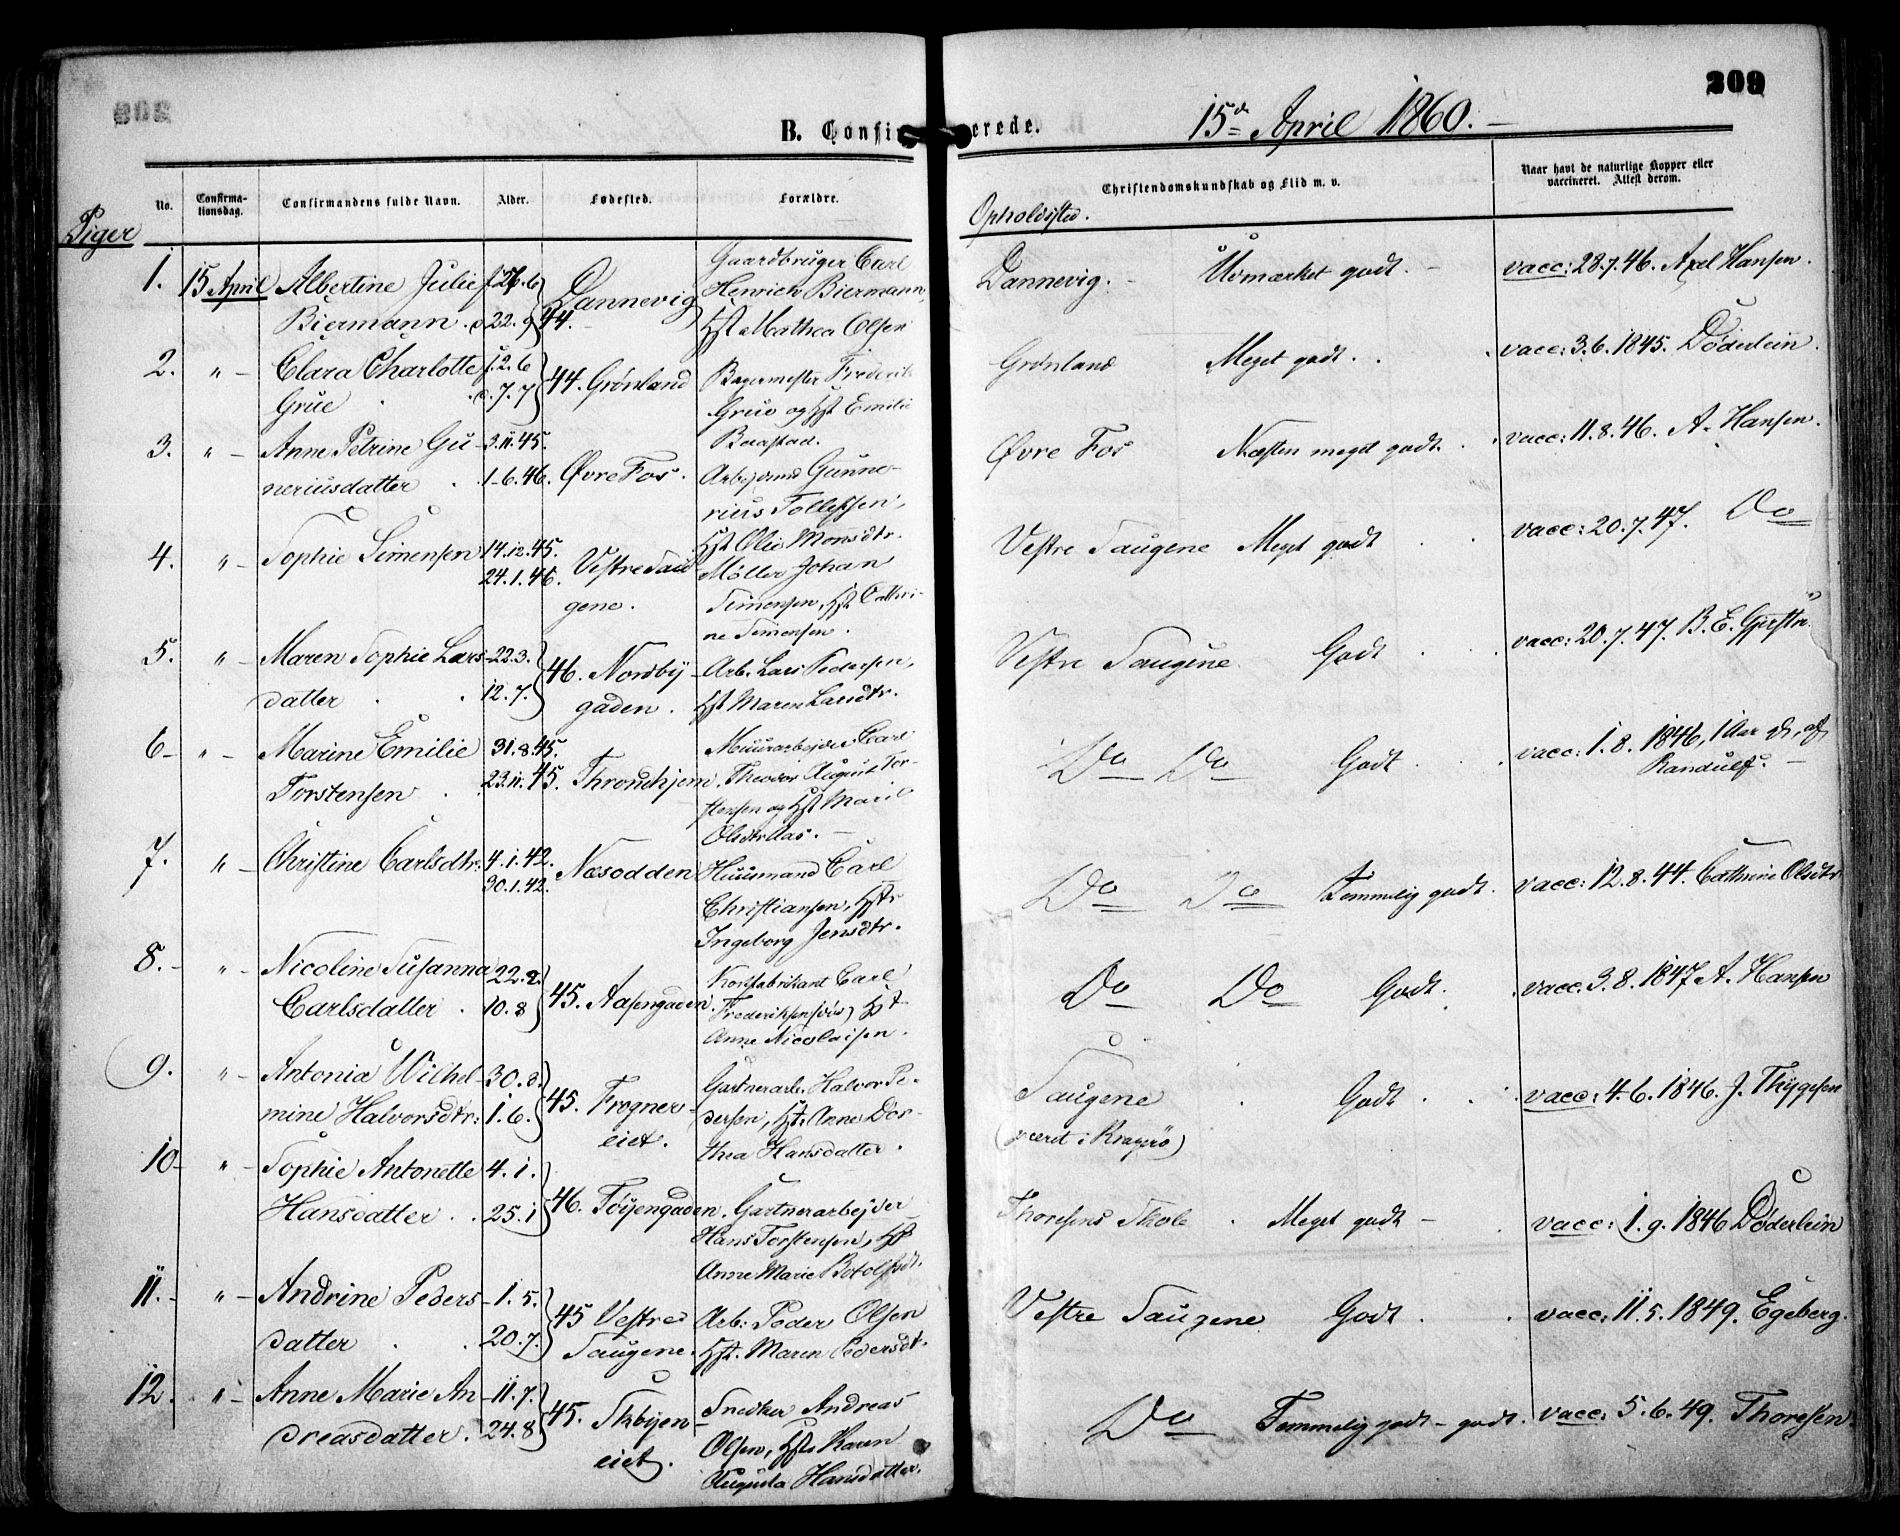 209
B. Confirmerede.
15de April 1860.
No.
Confirmationsdag.
Confirmandens fulde Navn.
Alder.
Fødested.
Forældre.
Christendomskundskab og Flid m. v.
Naar havt de naturlige Kopper eller vaccineret. Attest derom.
Piger
Opholdssted.
1. 15 April Albertine Julie f. 26.6 Dannevig Gaardbruger Carl
Biermann. d. 22.9 44. Henrich Biermann,
Hst. Mathea Olsen
Dannevig. Udmærket godt. vacc: 28.7.46. Axel Hansen.
2. " Clara Charlotte f. 2.6 44. Grønland Bagermester Frederik
Grue d. 7.7 Grue og Hst Emilie
Grønland Meget godt. vacc: 3.6.1845. Døderlein.
3. " Anne Petrine Gu- 3.11.45. Øvre Fos. Arbejdsmd Gunne-
neriusdatter 1.6.46. rius Tollefsen,
Hst Olia Monsdtr.
Øvre Fos Næsten meget godt. vacc: 11.8.46. A. Hansen.
4. " Sophie Simensen 14.12.45. Vestre Sau- Møller Johan
24.1.46. gene. Simensen, Hst Cathri-
ne Simensen.
Vestre Saugene Meget godt vacc: 20.7.47. Do
5. " Maren Sophie Lars- 22.3. 46. Nordby- Arb. Lars Pedersen,
datter 12.7. gaden. Hst Maren Larsdtr.
Vestre Saugene. Godt vacc: 20.7.47. B. E.
6 " Marine Emilie 31.8.45. Throndhjem. Muurarbejder Carl
Torstensen 23.11.45. Theodor August Tor-
stensen og Hst Maril
Do Do Godt vacc: 1.8.1846, 1 Aar
Randulf.
7. " Christine Carlsdtr. 4.1.42. Næsodden Huusmand Carl
30.1.42. Christiansen, Hst
Ingeborg Jensdtr.
Do Do Temmelig godt. vacc: 12.8.44. Cathrine Olsdtr
8. " Nicoline Susanna 22.2. 45. Aasengaden. Carl
Carlsdatter 10.8 Hst
Anne Nicolaisen.
Do Do Godt. vacc. 3.8.1847 A. Hansen
9. " Antonia Wilhel- 30.3. 45. Frogner- Gartnerarb. Halvor Pe-
mine Halvorsdtr. 1.6. eiet. dersen, Hst. Anne Dor-
thea Hansdatter.
Saugene Godt vacc: 4.6.1846. J. Thygesen
(været i Kragerø)
10 " Sophie Antonette 4.1. 46. Tøyengaden. Gartnerarbejder
Hansdatter 25.1 Hans Torstensen, Hst
Anne Marie Botolfsdt.
Thoresens Skole Meget godt vacc: 1.9.1846 Døderlein
11. " Andrine Peders- 1.5. 45 Vestre Arb: Peder Olsen
datter 20.7. Saugene. Hst. Maren Pedersdt.
Vestre Saugene Godt vacc: 11.5.1849. Egeberg.
12. " Anne Marie An- 11.7. 45. Snedker Andreas
dreasdatter. 24.8 eiet. Olsen, Hst Karen
Augusta Hansdatter.
Do Temmelig godt - godt. vacc: 5.6.49. Thoresen.